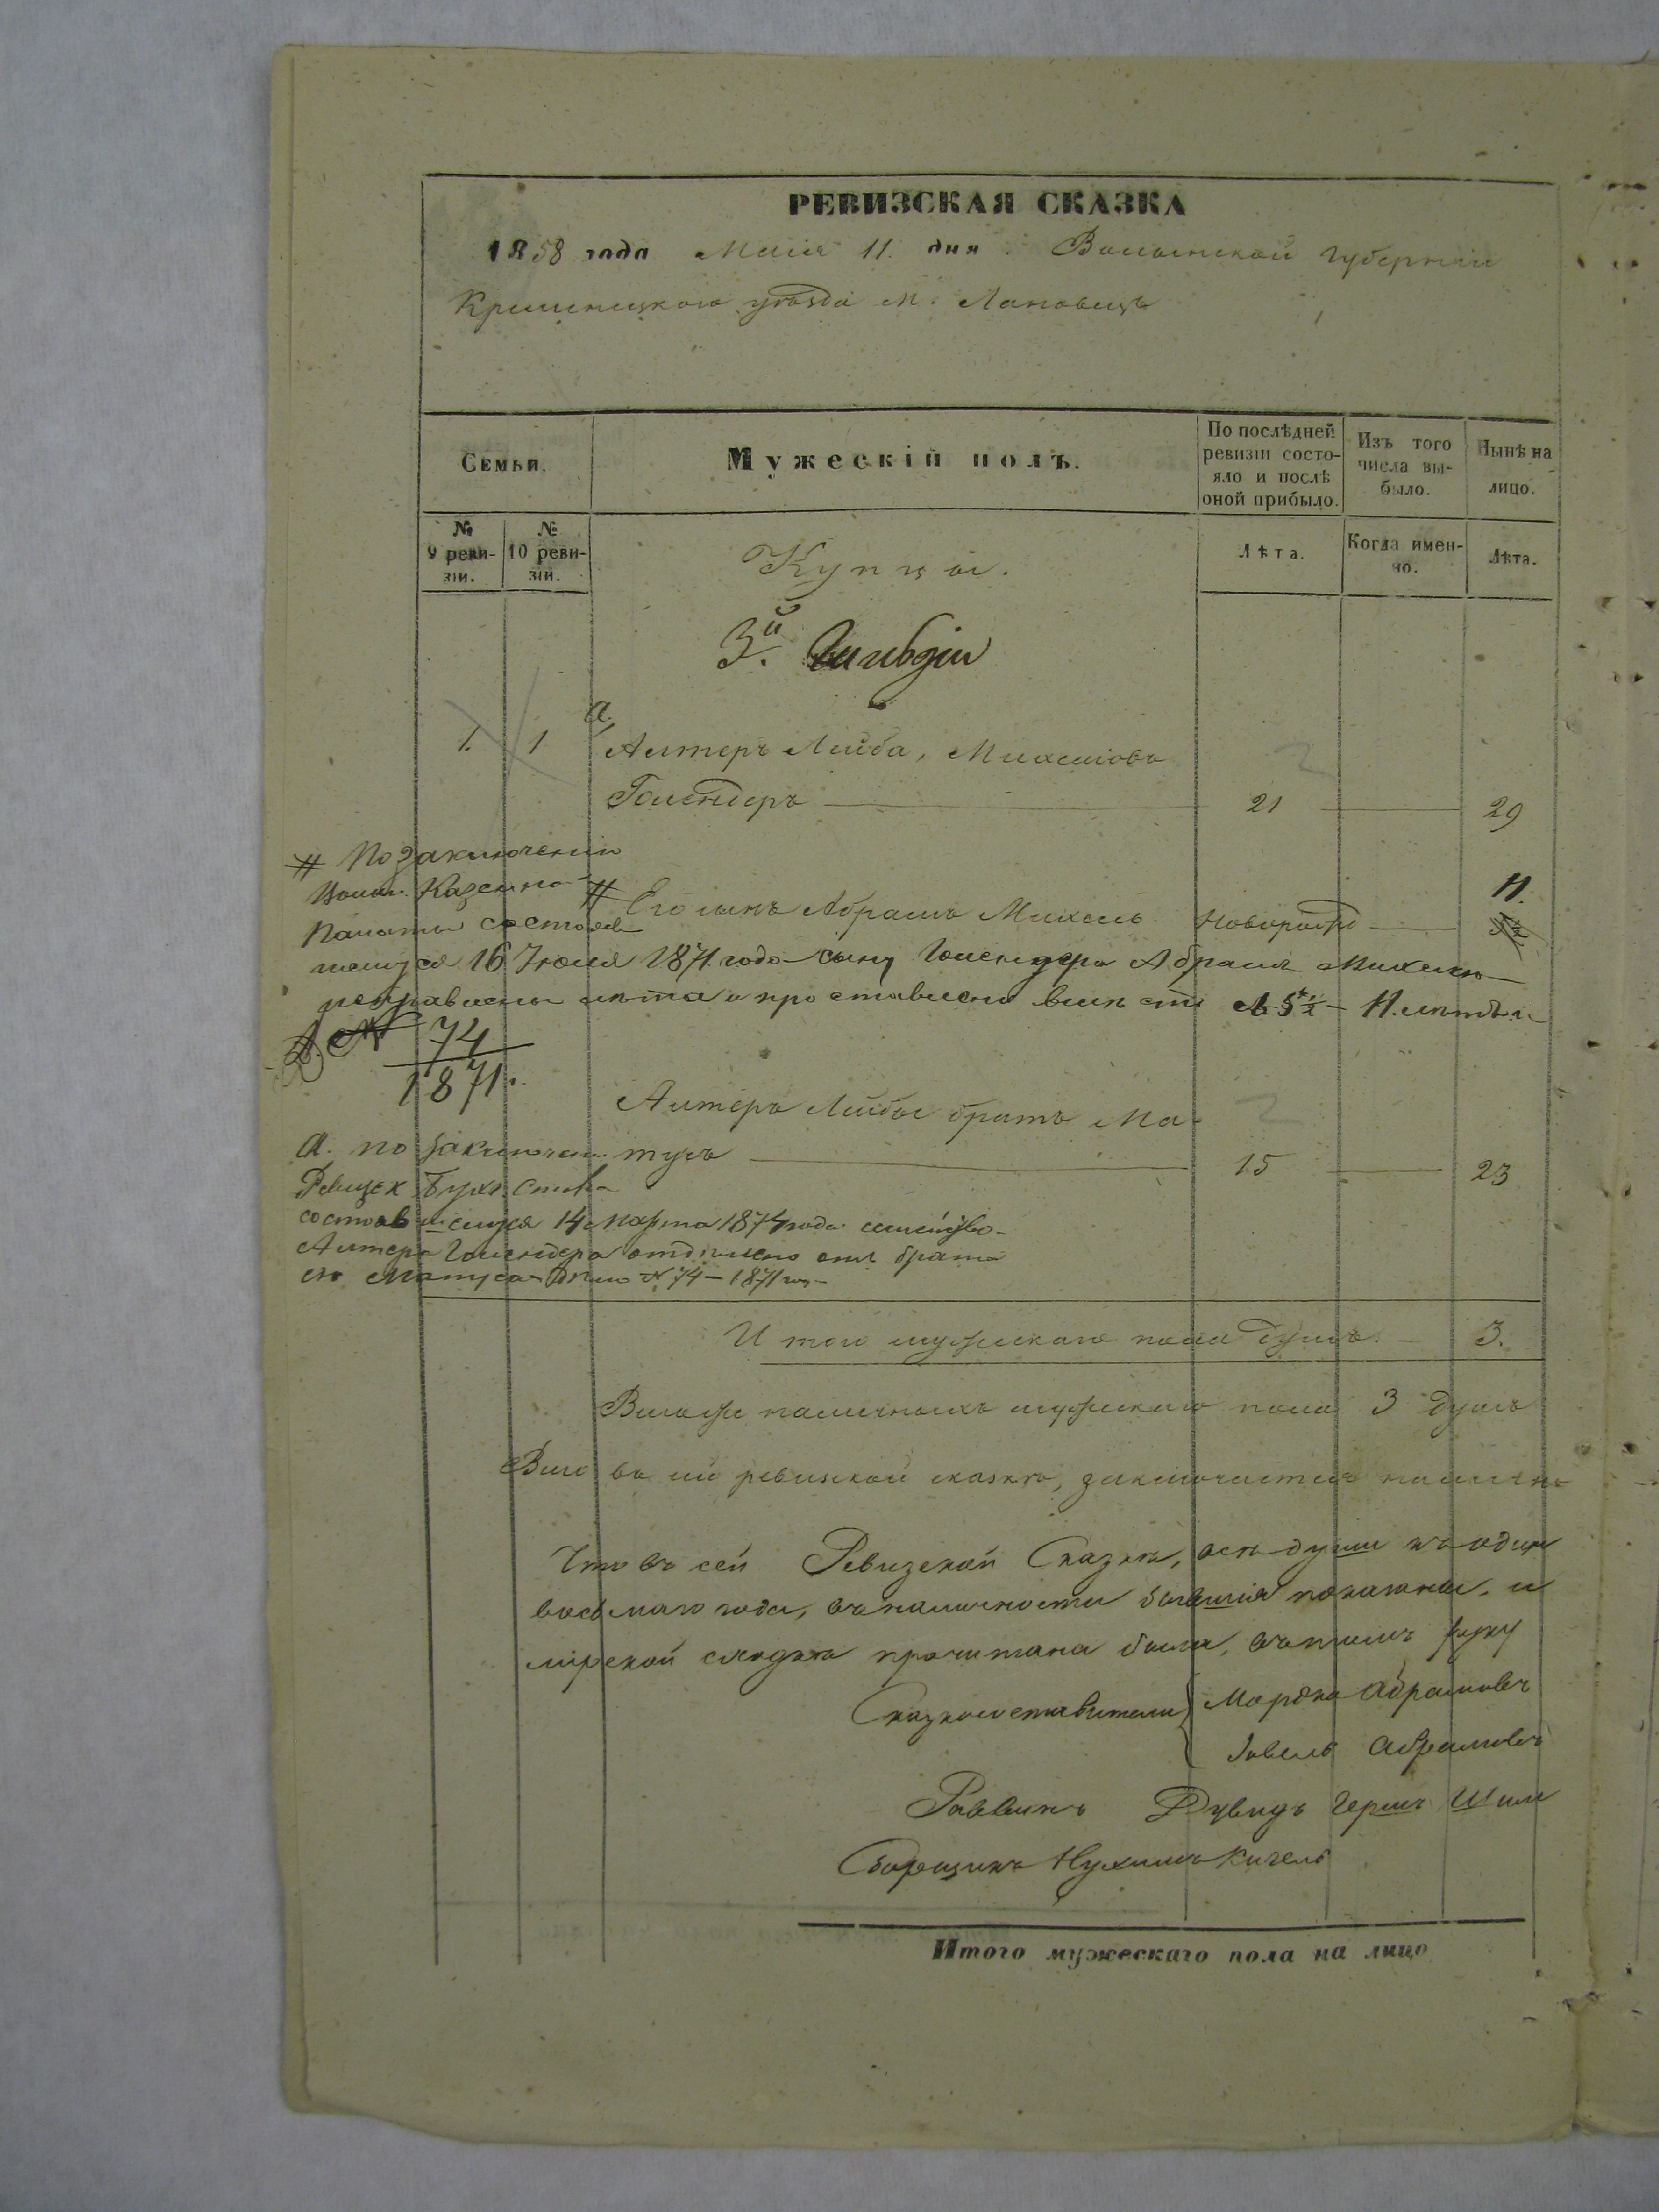 РЕВИЗСКАЯ СКАЗКА
1858 года Маія 11. дня Волынской Губерніи
Кременецкаго уѣзда м. Лановецъ
Семьи.
Мужескій полъ.
По послѣдней ревизіи состояло и послѣ оной прибыло.
Изъ того числа выбыло.
Нынѣ на лицо.
№ 9 ревизіи.
№ 10 ревизіи.
Лѣта.
Когда именно.
Лѣта.
Купцы.
3й Гильдіи
а.
1. 1 Алтеръ Лейба, Михелевъ
Голендеръ 21 29
# По заключенію
Волын. Казенно
Палаты состояв
# Его сынъ Абрамъ Михель Новорожд 11.
шемуся 16 Іюля 1871 года сыну Голендера Абраму Михелю
исправлены лѣта и проставлено вмѣсто 5½ 11. лѣтъ
Д. № 74
1871.
Алтера Лейбы братъ Ма-
тусъ 15 23
а. по заключен.
Ревизск
состоявшемуся 14 Марта 1874 года семейство
Алтера Голендера отдѣлено отъ брата
его Матуса Дѣло № 74 – 1871 год
Итого мужескаго пола душъ 3.
наличныхъ мужескаго пола 3 душъ
Всего въ сей ревизской сказкѣ, заключается налично
Что въ сей Ревизской Сказкѣ, всѣ души
восьмаго года, въ наличности бывшія показаны, и
мірской сходкѣ прочитана была, въ томъ руку
Сказкосоставители Мордко Абрамовъ
Абрамовъ
Раввинъ Дувидъ Гершъ
Сборщикъ Нухимъ
Итого мужескаго пола на лицо